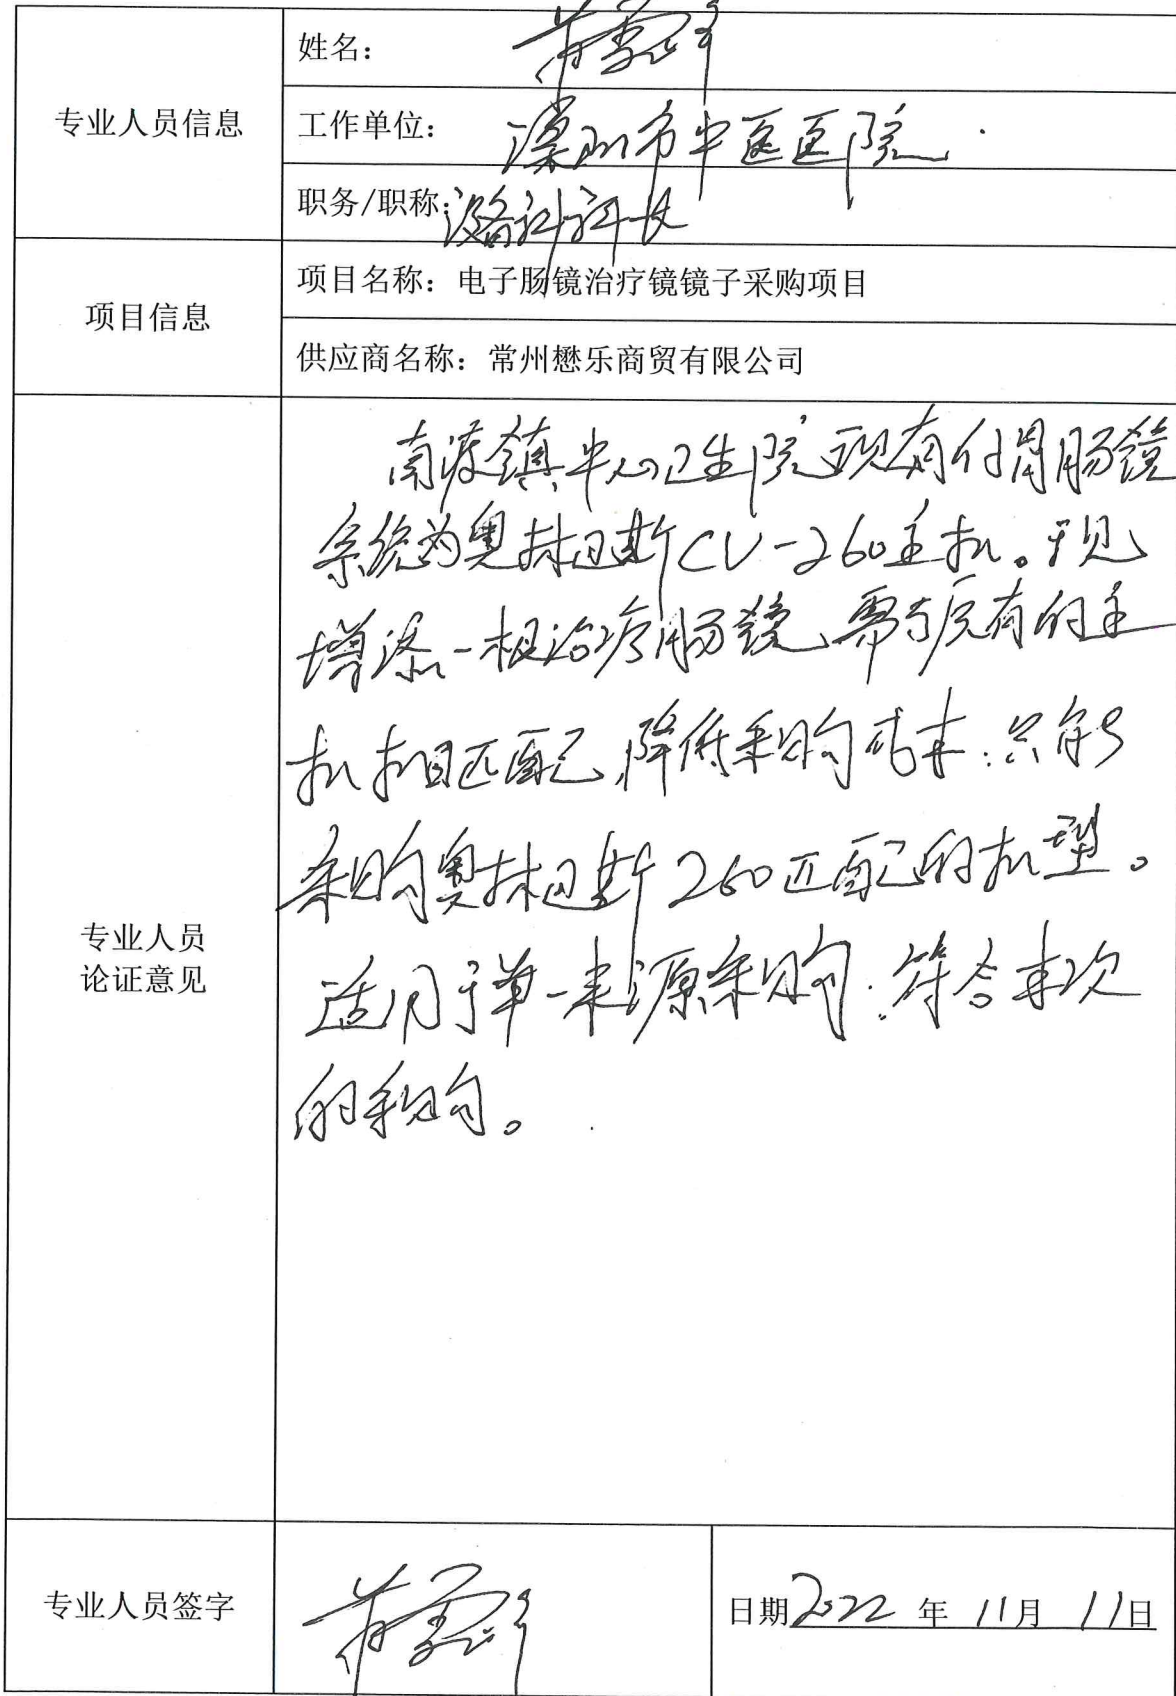 专业人员信息
姓名：
工作单位：溧阳市中医医院
职务/职称：设备科科长
项目信息
项目名称：电子肠镜治疗镜镜子采购项目
供应商名称：常州懋乐商贸有限公司
专业人员
论证意见
南渡镇中心卫生院现有的胃肠镜
系统为奥林巴斯CV-260主机。现
增添一根治疗肠镜，需与原有的主
机相匹配，降低采购成本，只能
采购奥林巴斯260匹配的机型。
适用于单一来源采购，符合本次
的采购。
专业人员签字
日期2022年11月11日